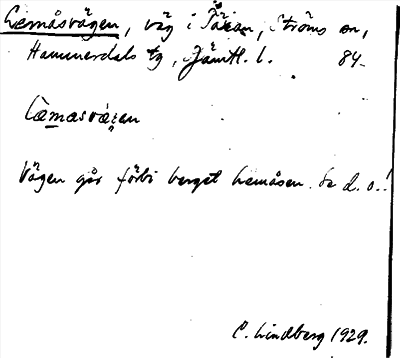 Lemåsvägen, väg i Tåsjön, Ströms sn,
Hammerdals tg, Jämtl. l. 84.
Læmasväɡen
Vägen går förbi berget Lemåsen. Se d. o.!
C. Lindberg 1929.